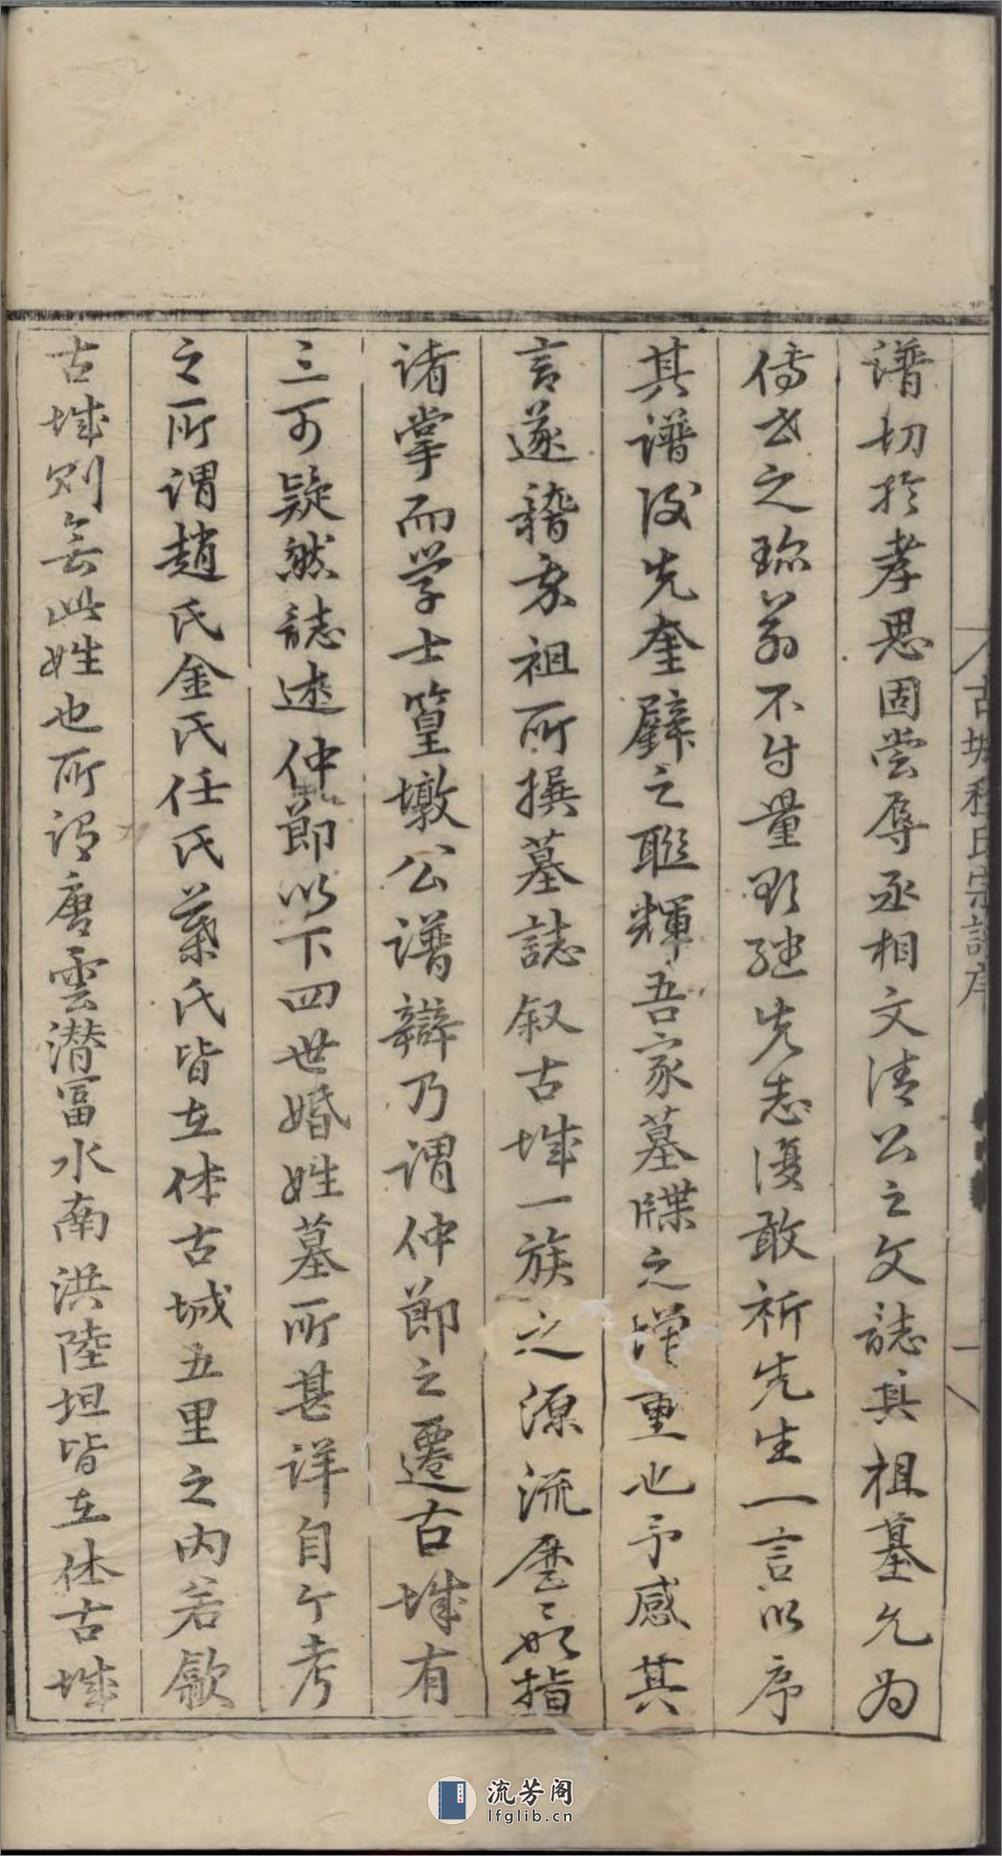 譜切於孝思固嘗辱丞相文清公之文誌其祖墓允为
傳世之珎翁不付量欲继先志復敢祈先生一言以序
其譜後先奎璧之聮輝吾家墓牒之增重也予感其
言遂稽宗祖所撰墓誌叙古城一族之源流歷〻如指
诸掌而学士篁墩公譜辯乃謂仲節之遷古城有
三可疑然誌述仲節以下四世婚姓墓所甚详自今考
之所谓趙氏金氏任氏葉氏皆在休古城五里之内若歙
古城则無此姓也所谓唐雲潜富水南洪陸坦皆在休古城
古城程氏宗譜序
一
流芳阁
lfglib.cn